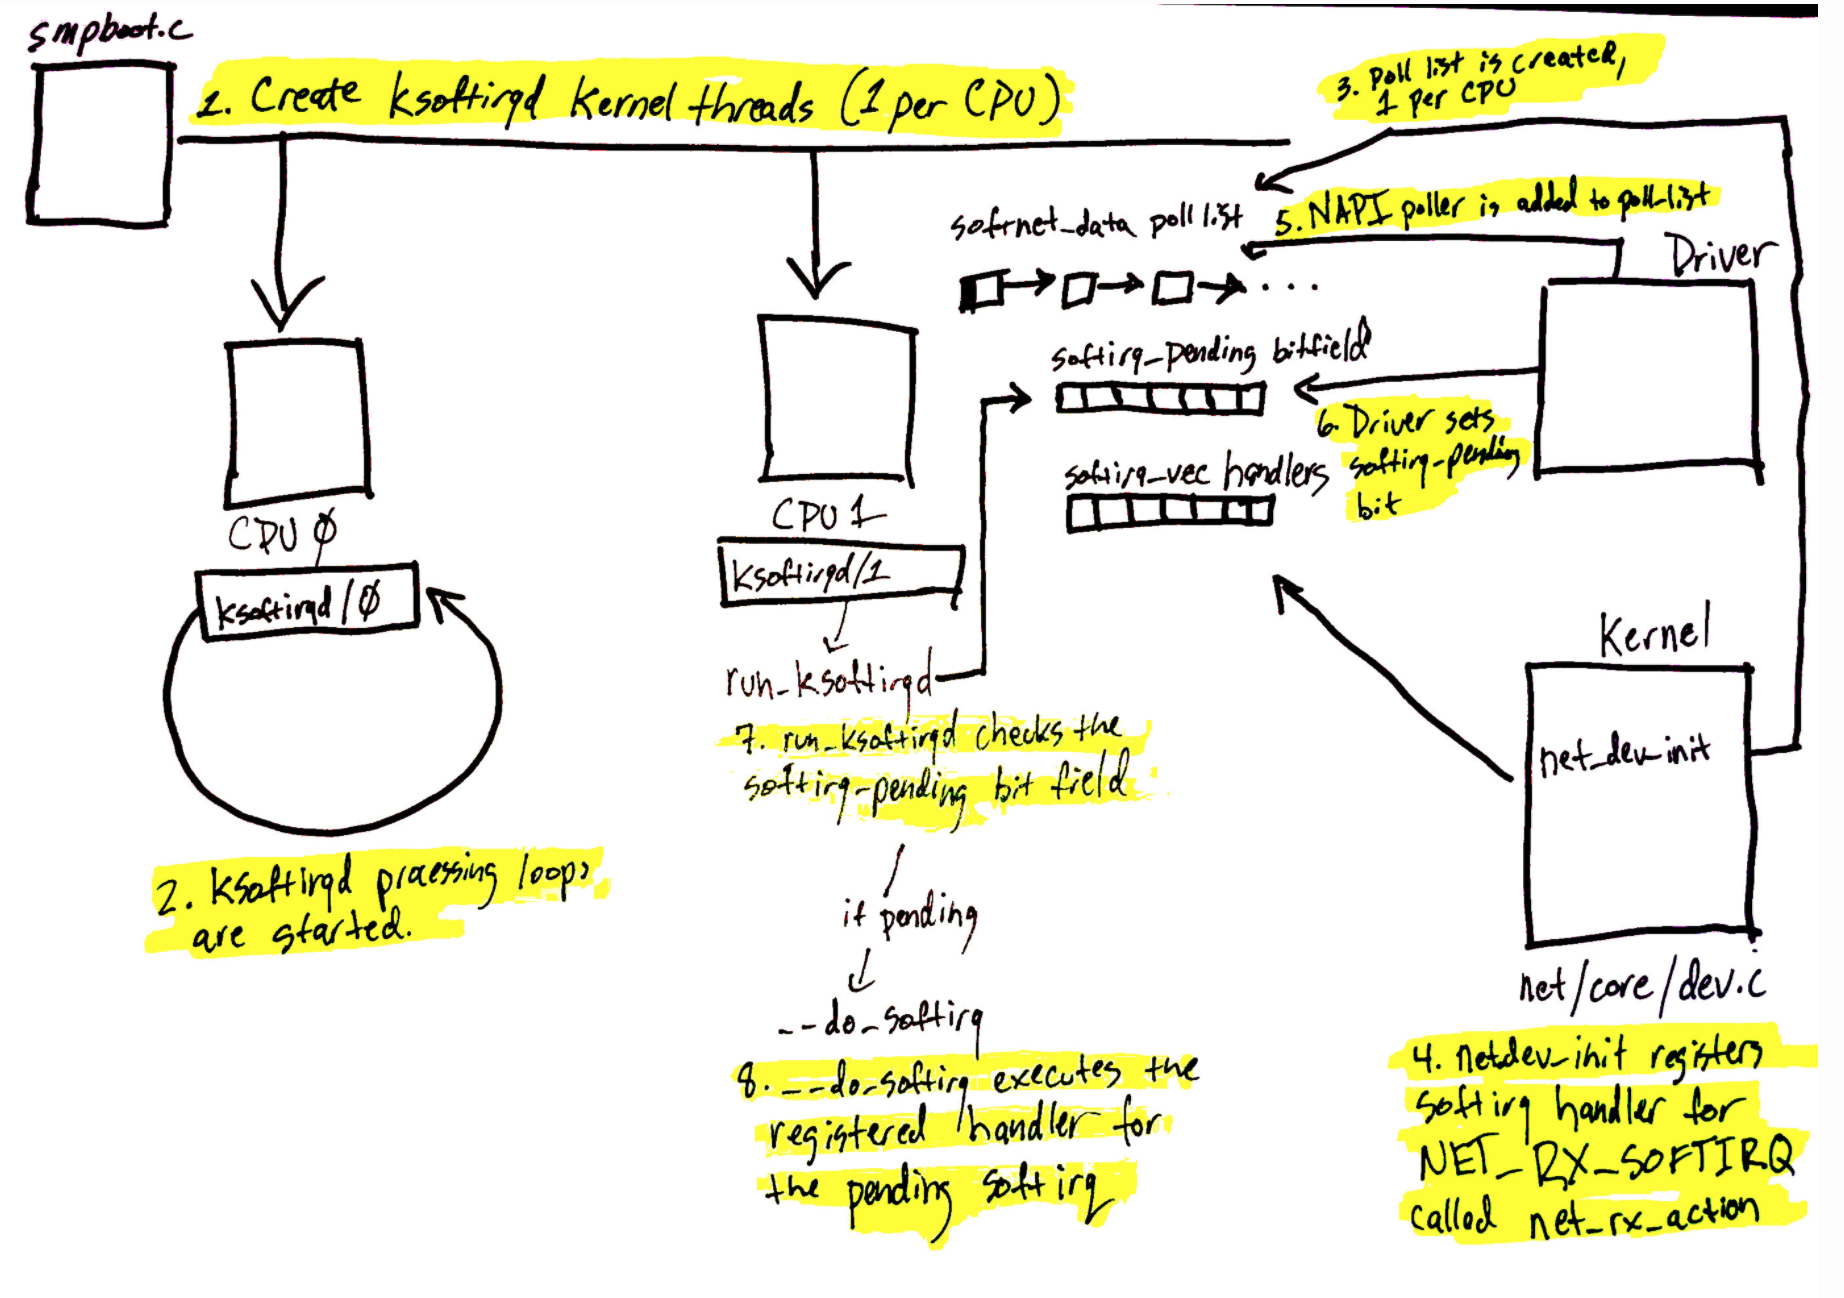 smpboot.c
1. Create ksoftirqd kernel threads (1 per CPU)
3. Poll list is created,
1 per CPU
softnet_data poll list
5. NAPI poller is added to poll_list
Driver
. . .
softirq_pending bitfield
6. Driver sets
softirq-pending
bit
softirq_vec handlers
CPU 0
ksoftirqd/0
CPU 1
ksoftirqd/1
run_ksoftirqd
7. run_ksoftirqd checks the
softirq-pending bit field
if pending
__do_softirq
8. __do_softirq executes the
registered handler for
the pending softirq
2. Ksoftirqd processing loops
are started.
Kernel
net_dev_init
net/core/dev.c
4. netdev_init registers
softirq handler for
NET_RX_SOFTIRQ
called net_rx_action